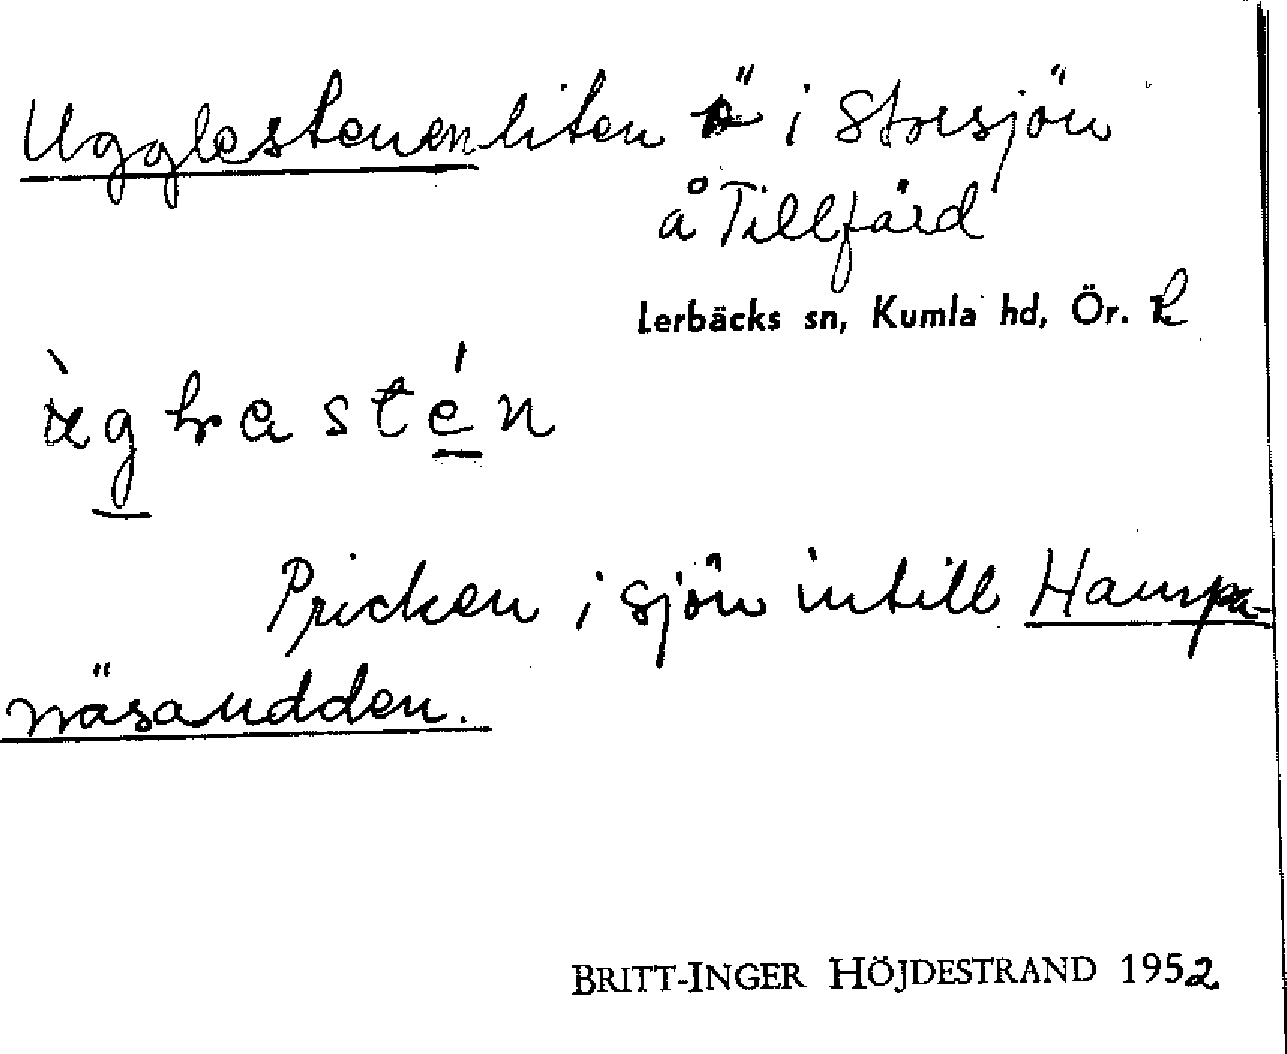 Ugglestenen liten ö i Storsjön
å Tillfärd
Lerbäcks sn, Kumla hd, Ör. L
Pricken i sjön intill Hampa-
näsaudden.
BRITT-INGER HÖJDESTRAND 1952